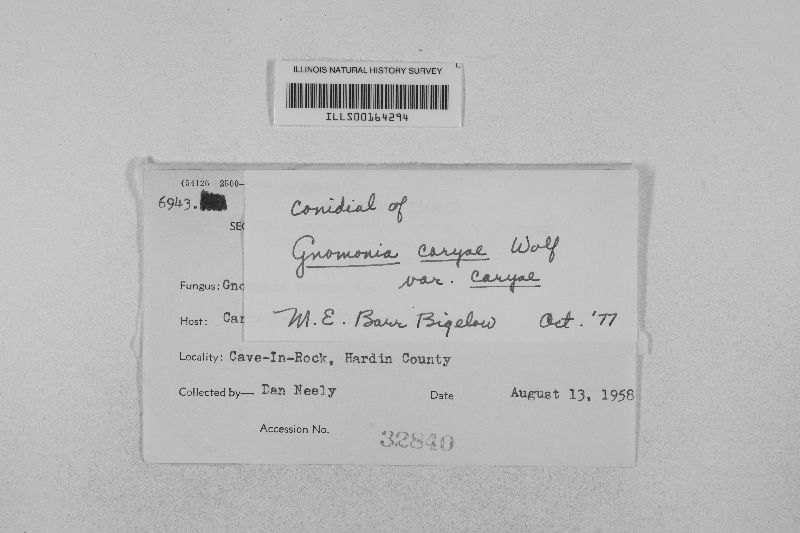 ILLINOIS NATURAL HISTORY SURVEY
ILLS00164294
(54126 2500—
6943.
conidial of
Gnomonia caryae Wolf
var. caryae
M. E. Barr Bigelow Oct. '77
SEC
Fungus: Gno
Host: Car
Locality: Cave-In-Rock, Hardin County
Collected by— Dan Neely Date August 13, 1958
Accession No. 32840